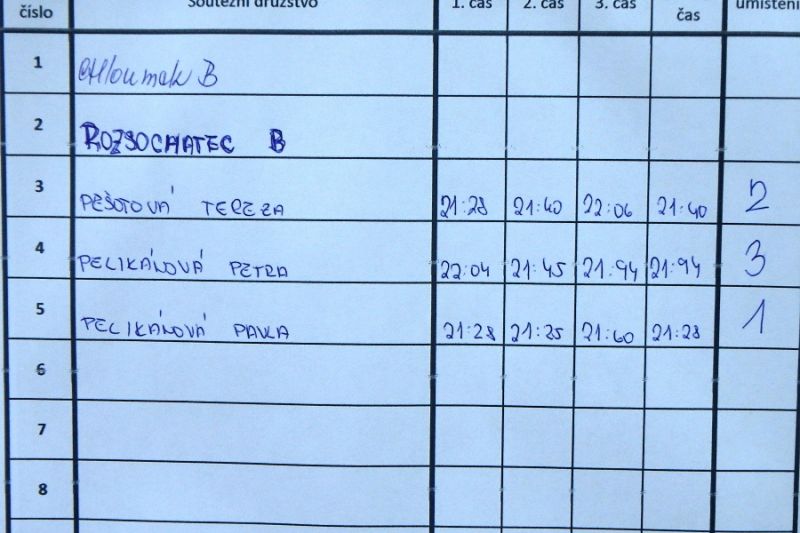 číslo Soutěžní družstvo 1. čas 2. čas 3. čas čas umístění
1 Chloumek B
2 ROZSOCHATEC B
3 PEŠOTOVÁ TEREZA 21:28 21:40 22:06 21:40 2
4 PELIKÁNOVÁ PETRA 22:04 21:45 21:94 21:94 3
5 PELIKÁNOVÁ PAVLA 21:28 21:25 21:60 21:28 1
6
7
8